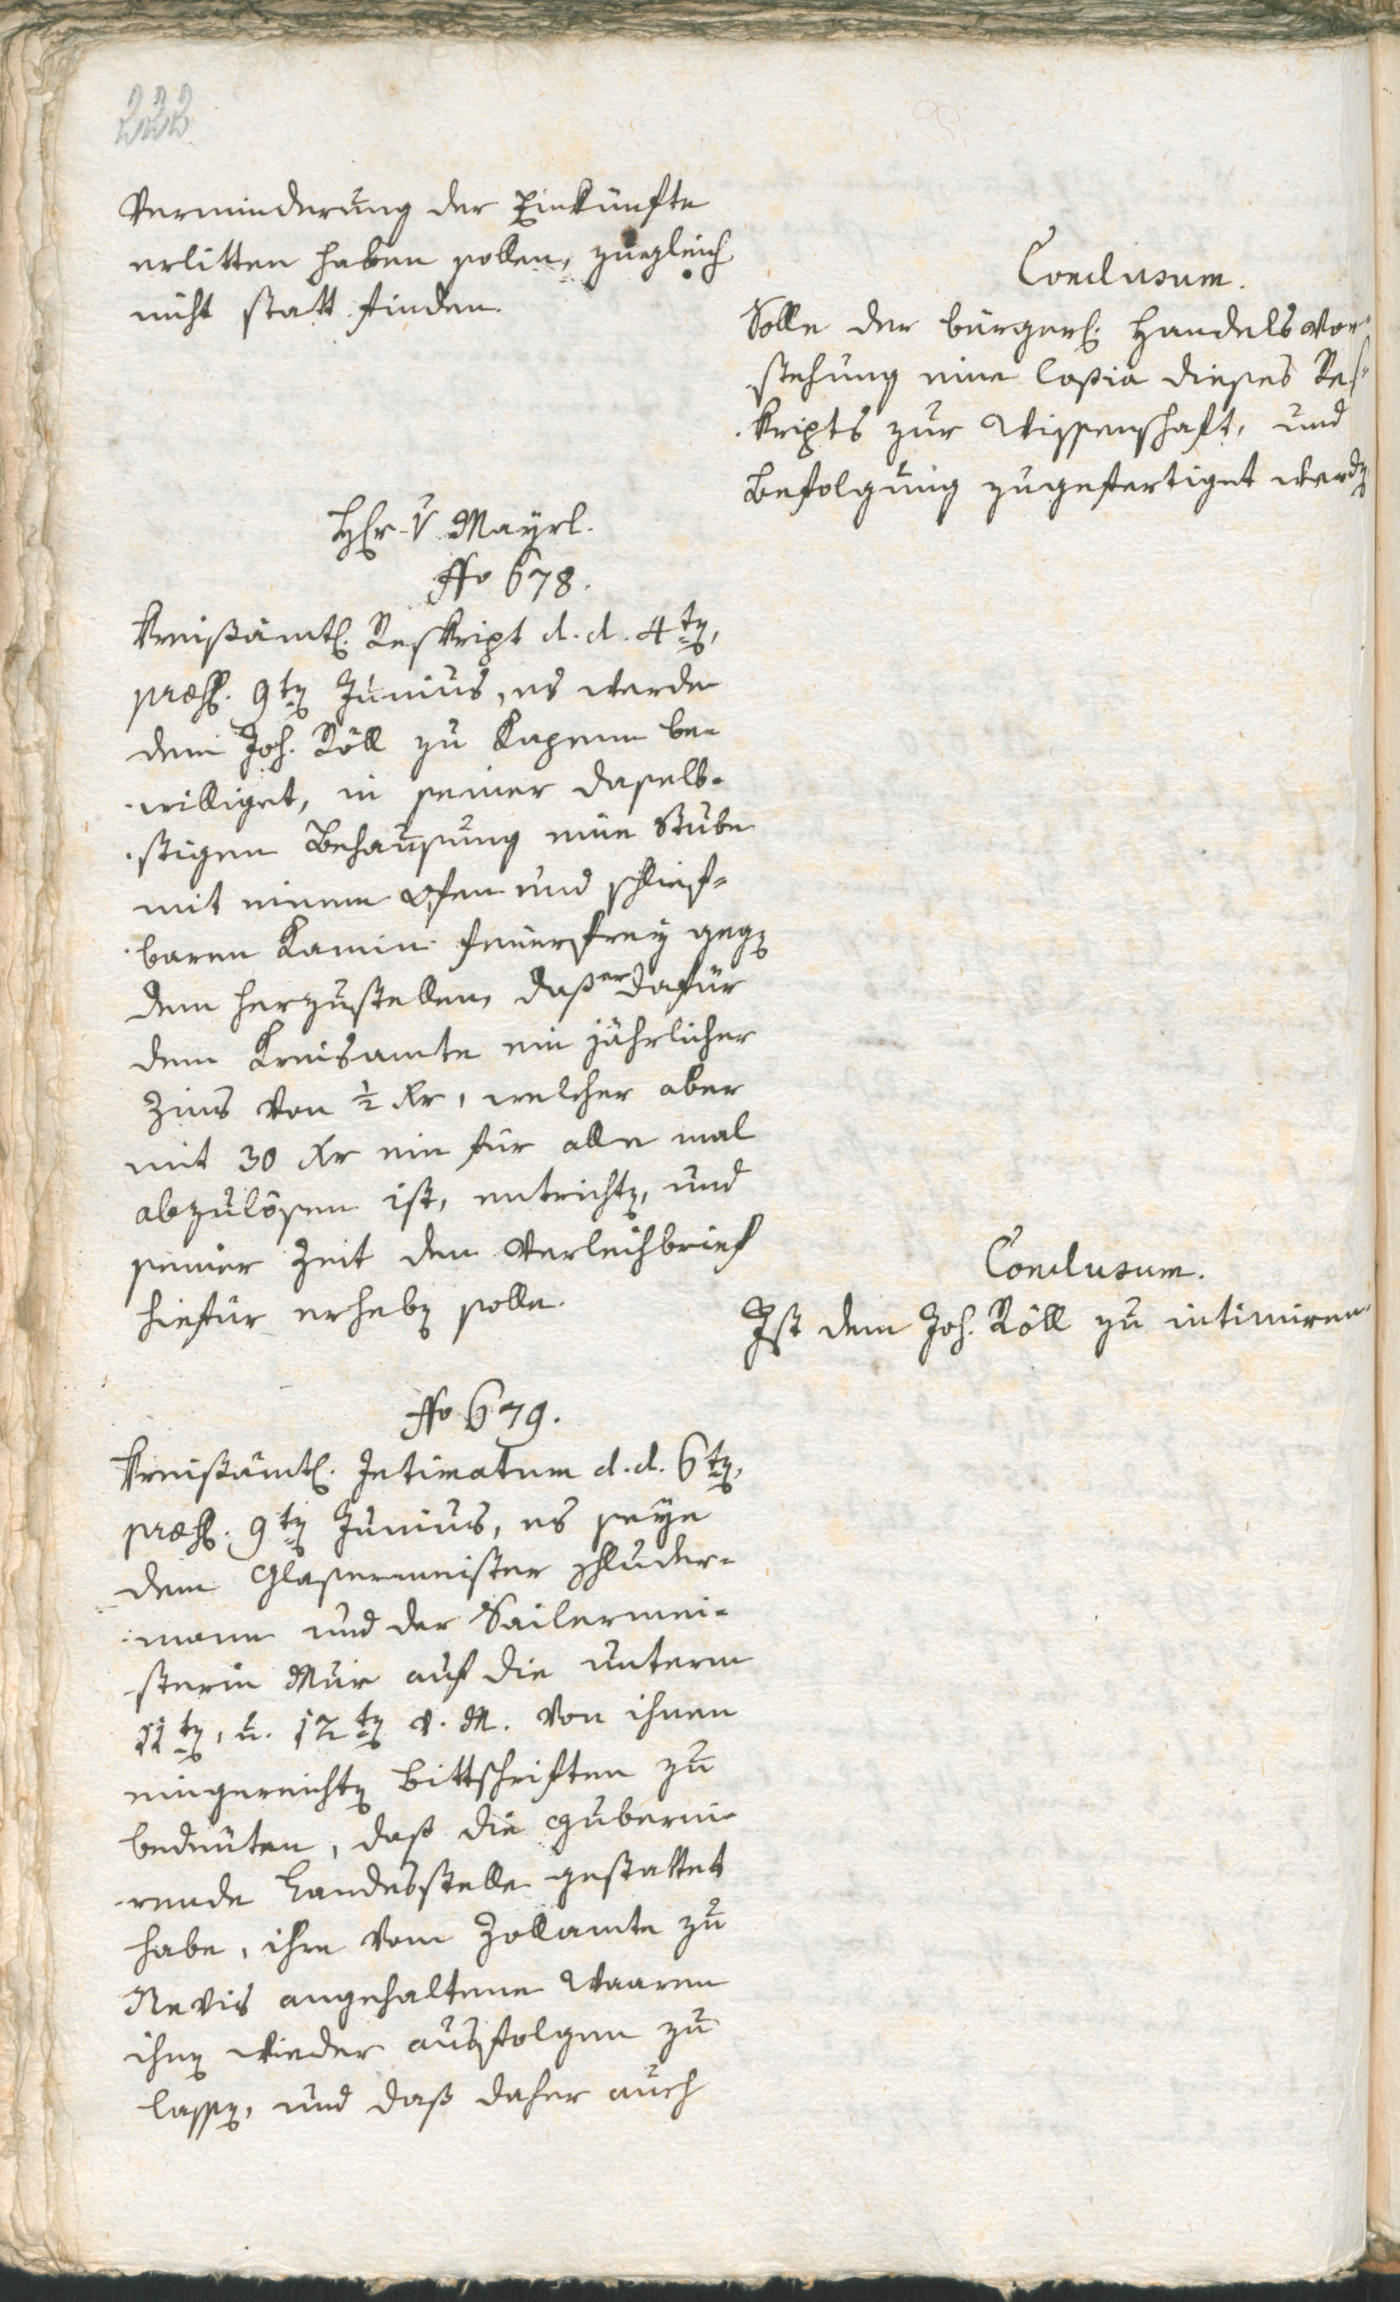 222
Verminderung der Einkünfte
erlitten haben sollen, zugleich
nicht statt finden.
Conclusum.
Solle der bürgerl. Handels Vor-
stehung eine Copia dieses Res-
kripts zur Wissenschaft, und
Befolgung zugefertiget werdn
Hr. v Mayrl.
No 678.
Kreißämtl. Reskript d. d. 4tn,
præs. 9tn Junius, es werde
dem Joh. Röll zu Kagenn be-
williget, in seiner daselb-
stigen Behausung eine Stube
mit einem Ofen und schlief-
baren Kamin feuersfrey gegn
dem herzustellen, daß er dafür
dem Kreisamte ein jährlicher
Zins von ½ Kr, welcher aber
mit 30 Kr ein für alle mal
abzulösen ist, entrichtn, und
seiner Zeit den Verleihbrief
hiefür erhebn solle.
Conclusum.
Ist dem Joh. Röll zu intimiren.
No 679.
Kreißämtl. Intimatum d. d. 6tn,
præs. 9tn Junius, es seye
dem Glasermeister Schluder-
mann und der Sailermei-
sterin Mur auf die unterm
11tn, u. 12tn v. M. von ihnen
eingereichtn Bittschriften zu
bedeuten, daß die guberni-
rende Landesstelle gestattet
habe, ihre vom Zollamte zu
Nevis angehaltene Waaren
ihnn wieder ausfolgen zu
lassn, und daß daher auch